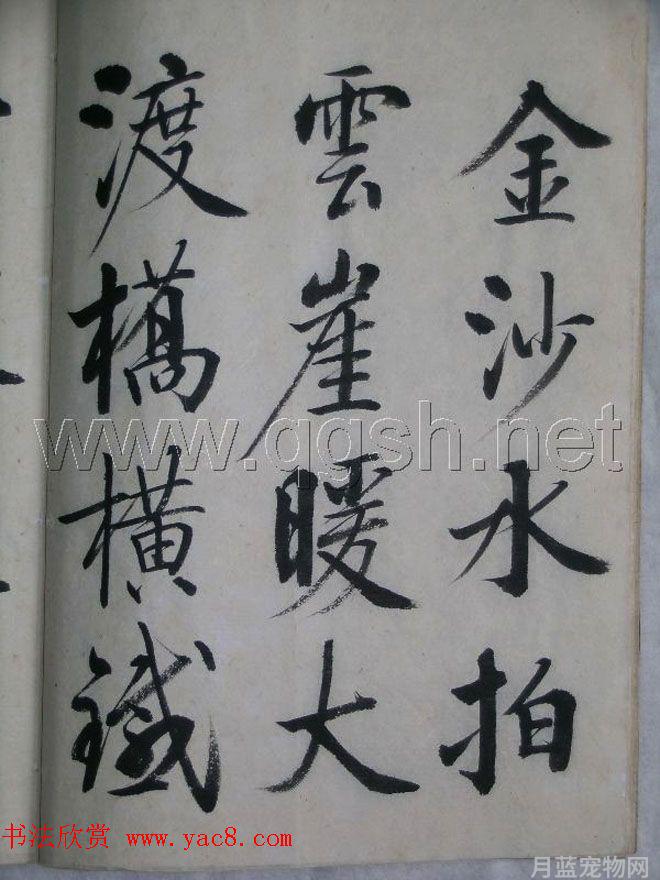 金沙水拍
雲崖暖大
渡橋橫鐵
www.qgsh.net
书法欣赏 www.yac8.com
月蓝宠物网